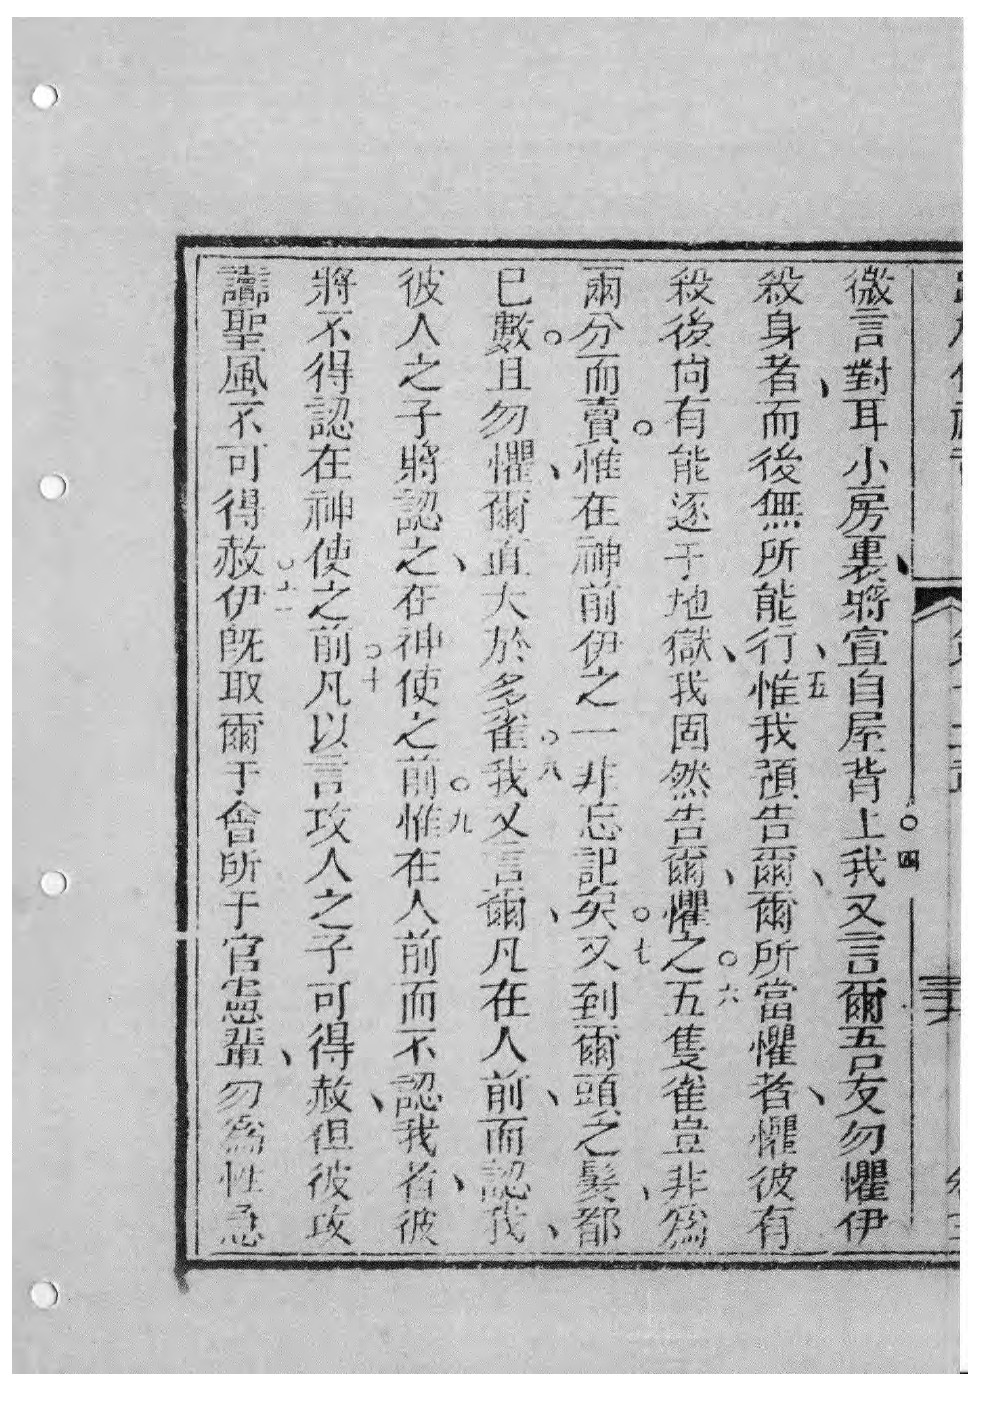 微言對耳小房裏、將宣自屋背上。四我又言爾吾友勿懼伊
殺身者、而後無所能行、五惟我預告爾、爾所當懼者、懼彼有
殺後尙有能逐于地獄、我固然告爾、懼之。六五隻雀豈非爲
兩分而賣。惟在神前伊之一非忘記矣。七又到爾頭之髮、都
已數。且勿懼、爾直大於多雀。八我又言爾、凡在人前、而認我、
彼人之子將認之、在神使之前。九惟在人前而不認我者、彼
將不得認在神使之前。十凡以言攻人之子可得赦、但彼攻
讟聖風不可得赦。十一伊旣取爾于會所于官憲輩、勿爲性急